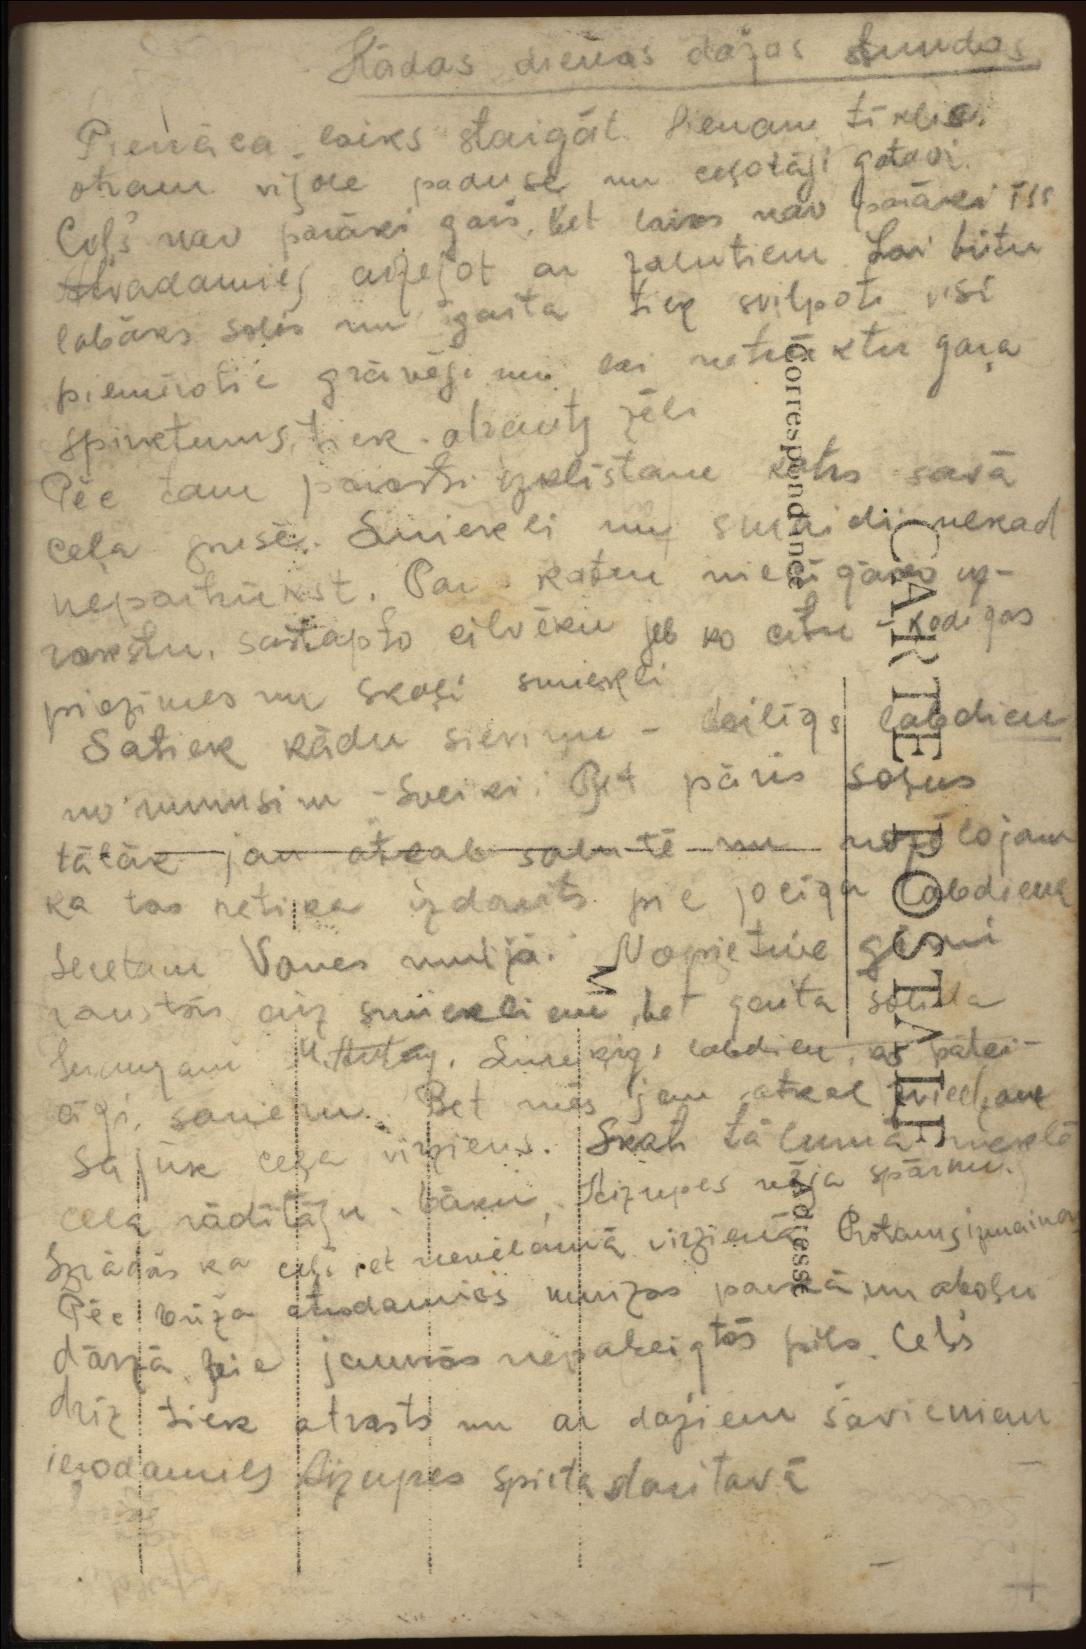 Kādas dienas dažas stundas
Pienāca laiks staigāt. Vienam tīkliņš
otram vijole paduse un ceļotāji gatavi.
Ceļš nav parāki garš, bet laiks nav parāki īss
Atvadamies aizejot ar zalutiem Lai būtu
labāks solis un gaita tiek svilpoti visi
piemēroti un lai netrūktu gara
spirktums, tiek atrauts zēli
Pēc tam parasti izklīstam katrs savā
ceļa pusē. Smiekli un smaidi nekad
nepārtrūkst. Par katru niecīgāko uz-
rakstu, sastapto cilvēku jeb ko citu - kodīgas
piezīmes un skaļi smiekli
Satiek kādu sieviņu - laipnīgs labdien
no mums - Sveiki. Bet pāris soļus
tālāk jau atkal salutē un nožēlojam
ka tas netika izdarīts pie jocīga labdiena
Vanes muljā. Nopietnie ģīmi
raustās aiz smiekliem, bet gaita solīda
labdien, ar
sanem. Bet mēs jau atkal
Sajūk ceļa virziens. Skats tālumā meklē
ceļa rādītāju - bāku, Aizupes vēja spārnu.
Izrādās ka ceļš iet nevēlamā virzienā Protams izmainam
Pēc brīža atrodamies muižas parkā un abolu
dārzā pie jaunās nepabeigtās pils. Ceļš
drīz tiek atrasts un ar dažiem šāvieniem
ierodamies Aizupes spirta darītavā
Correspondance
CARTE POSTALE
Adresse
M